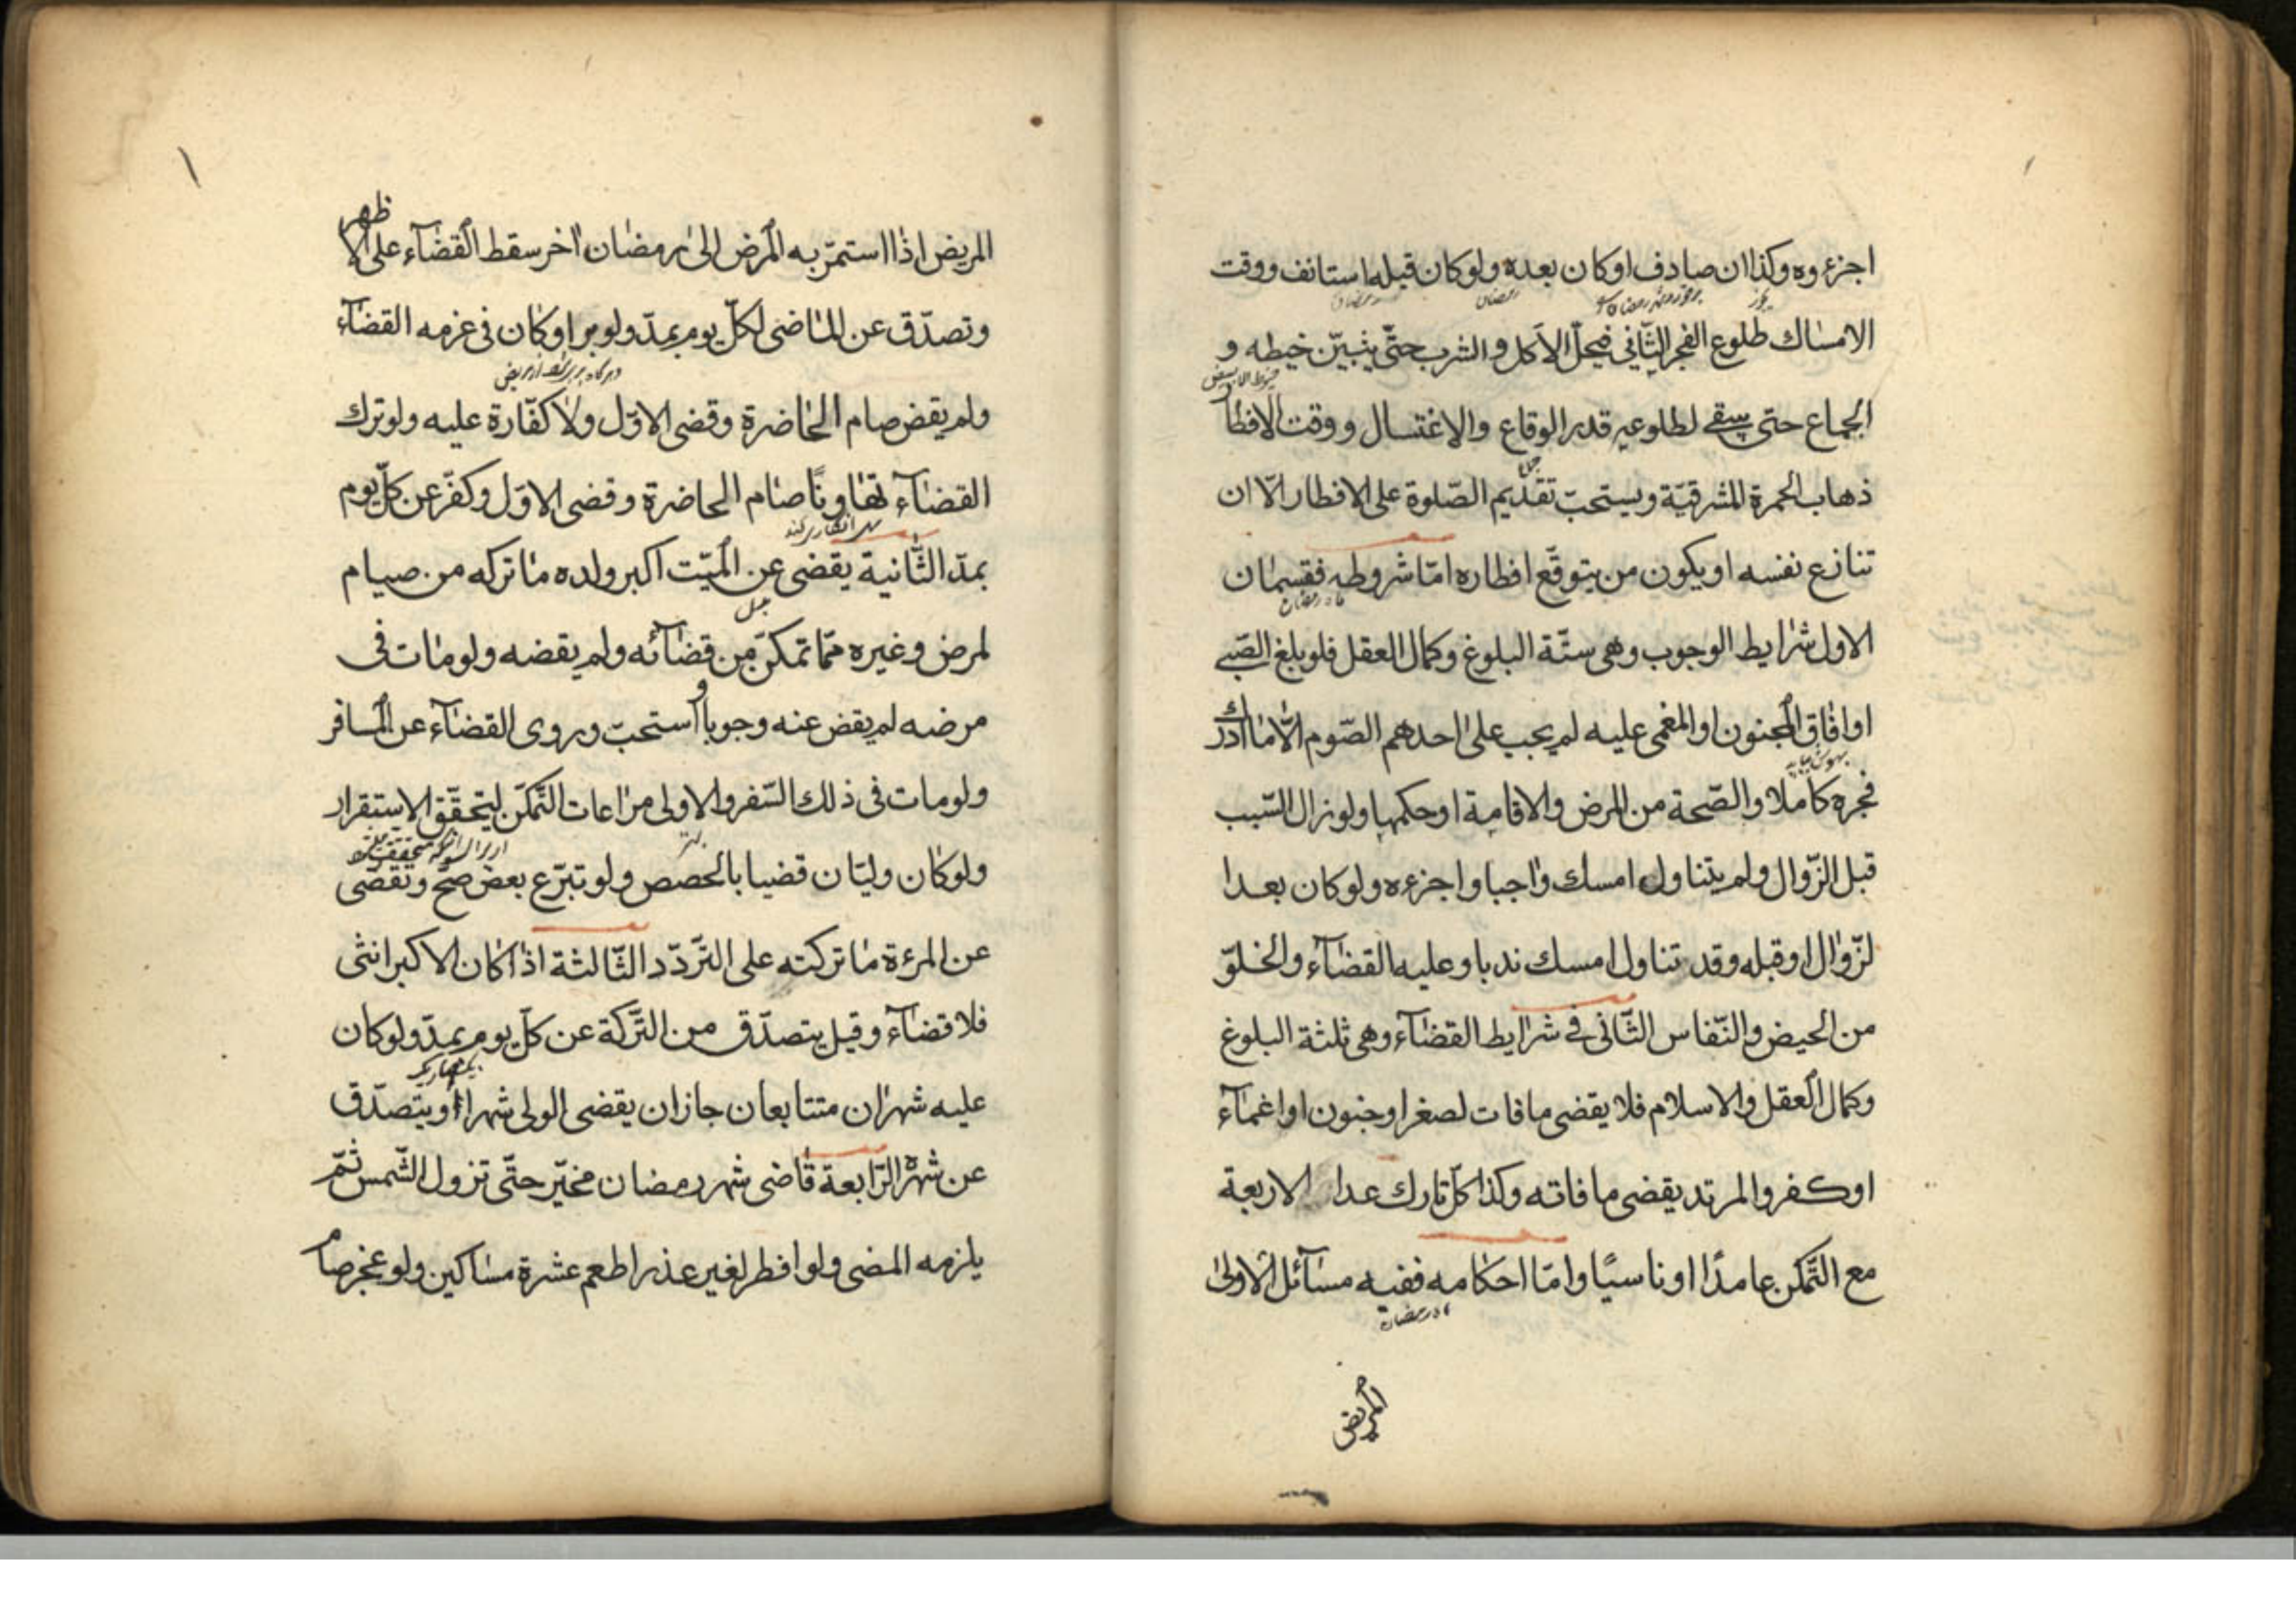 اجزءوه وكذا ان صادف او كان بعده ولو كان قبله استانف ووقت
رمضان
الامساك طلوع الفجر الثّاني فيحلّ الاكل والشرب حتّى يتبيّن خيطه و
الجماع حتى يبقى لطلوعه قدر الوقاع والاغتسال ووقت الافطار
ذهاب الحمرة المشرقيّة ويستحبّ تقديم الصّلوة على الافطار الّا ان
تنازع نفسه او يكون من يتوقّع افطاره امّا شروطه فقسمان
الاول شرايط الوجوب وهى ستّة البلوغ وكمال العقل فلو بلغ الصّبى
او افاق المجنون او المغمى عليه لم يجب على احدهم الصّوم الّا ما ادرك
فجره كاملا والصّحة من المرض والاقامة او حكمها ولو زال السّبب
قبل الزّوال ولم يتناول امسك واجبا واجزءه ولو كان بعدا
لزّوال او قبله وقد تناول امسك ندبا وعليه القضآء والخلوّ
من الحيض والنّفاس الثّانى فى شرايط القضآء وهى ثلثة البلوغ
وكمال العقل والاسلام فلا يقضى ما فات لصغر او جنون او اغمآء
او كفر والمرتد يقضى ما فاته وكذا كلّ تارك عدا الاربعة
مع التّمكن عامدًا او ناسيًا وامّا احكامه ففيه مسآئل الاولىٰ
المريض
المريض اذا استمرّ به المرض الىٰ رمضان اخر سقط القضآء على الا ظهر
وتصدّق عن الماضى لكلّ يوم بمدّ ولو برا وكان فى عزمه القضآء
ولم يقض صام الحاضرة وقضى الاوّل ولا كفّارة عليه ولو ترك
القضآء تهاونًا صام الحاضرة وقضى الاوّل وكفّر عن كلّ يوم
بمدّ الثّانية يقضى عن الميّت اكبر ولده ما تركه من صيام
لمرض وغيره ممّا تمكّن من قضآئه ولم يقضه ولو مات فى
مرضه لم يقض عنه وجوبا و استحبّ وروى القضآء عن المسافر
ولو مات فى ذلك السّفر والاولى مراعات التّمكّن ليتحقّق الاستقرار
ولو كان وليّان قضيا بالحصص ولو تبرّع بعض صحّ وتقضّى
عن المرءة ما تركته على التّردّد الثّالثة اذا كان الاكبر انثى
فلا قضآء وقيل يتصدّق من التّركة عن كلّ يوم بمدّ ولو كان
عليه شهران متتابعان جاز ان يقضى الولى شهرا او يتصدّق
عن شهر الرّابعة قاضى شهر رمضان مخيّر حتّى تزول الشّمس ثمّ
يلزمه المضى ولو افطر لغير عذر اطعم عشرة مساكين ولو عجز صام